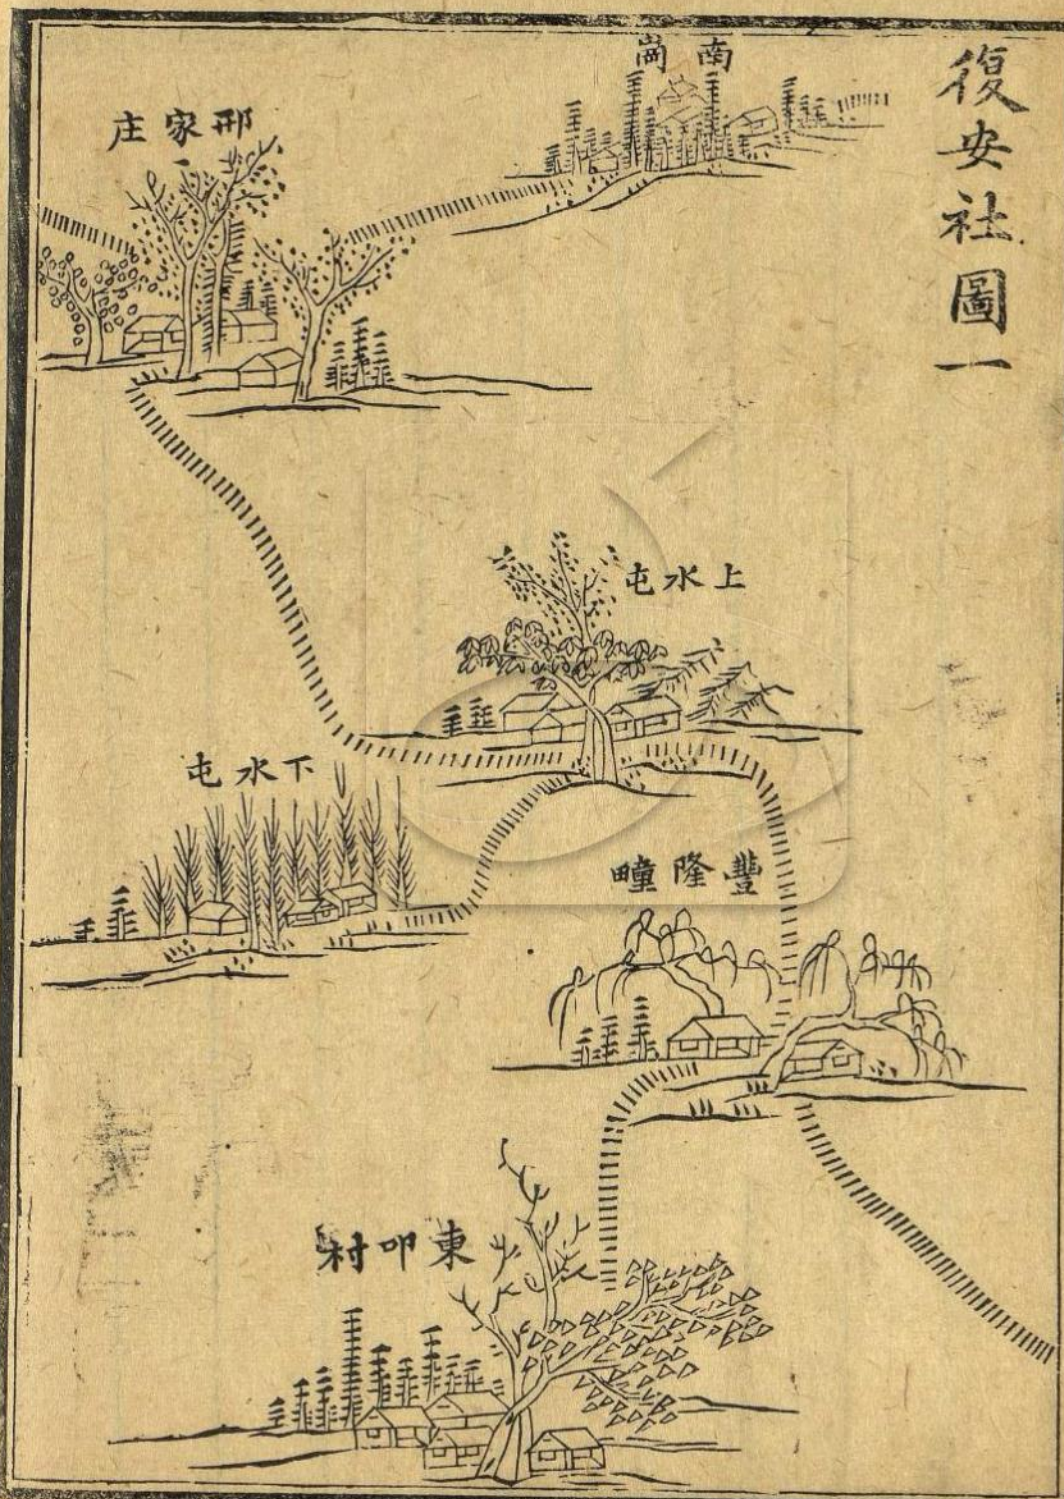 復安社圖一
南崗
邢家庄
上水屯
下水屯
豐隆疃
東叩村